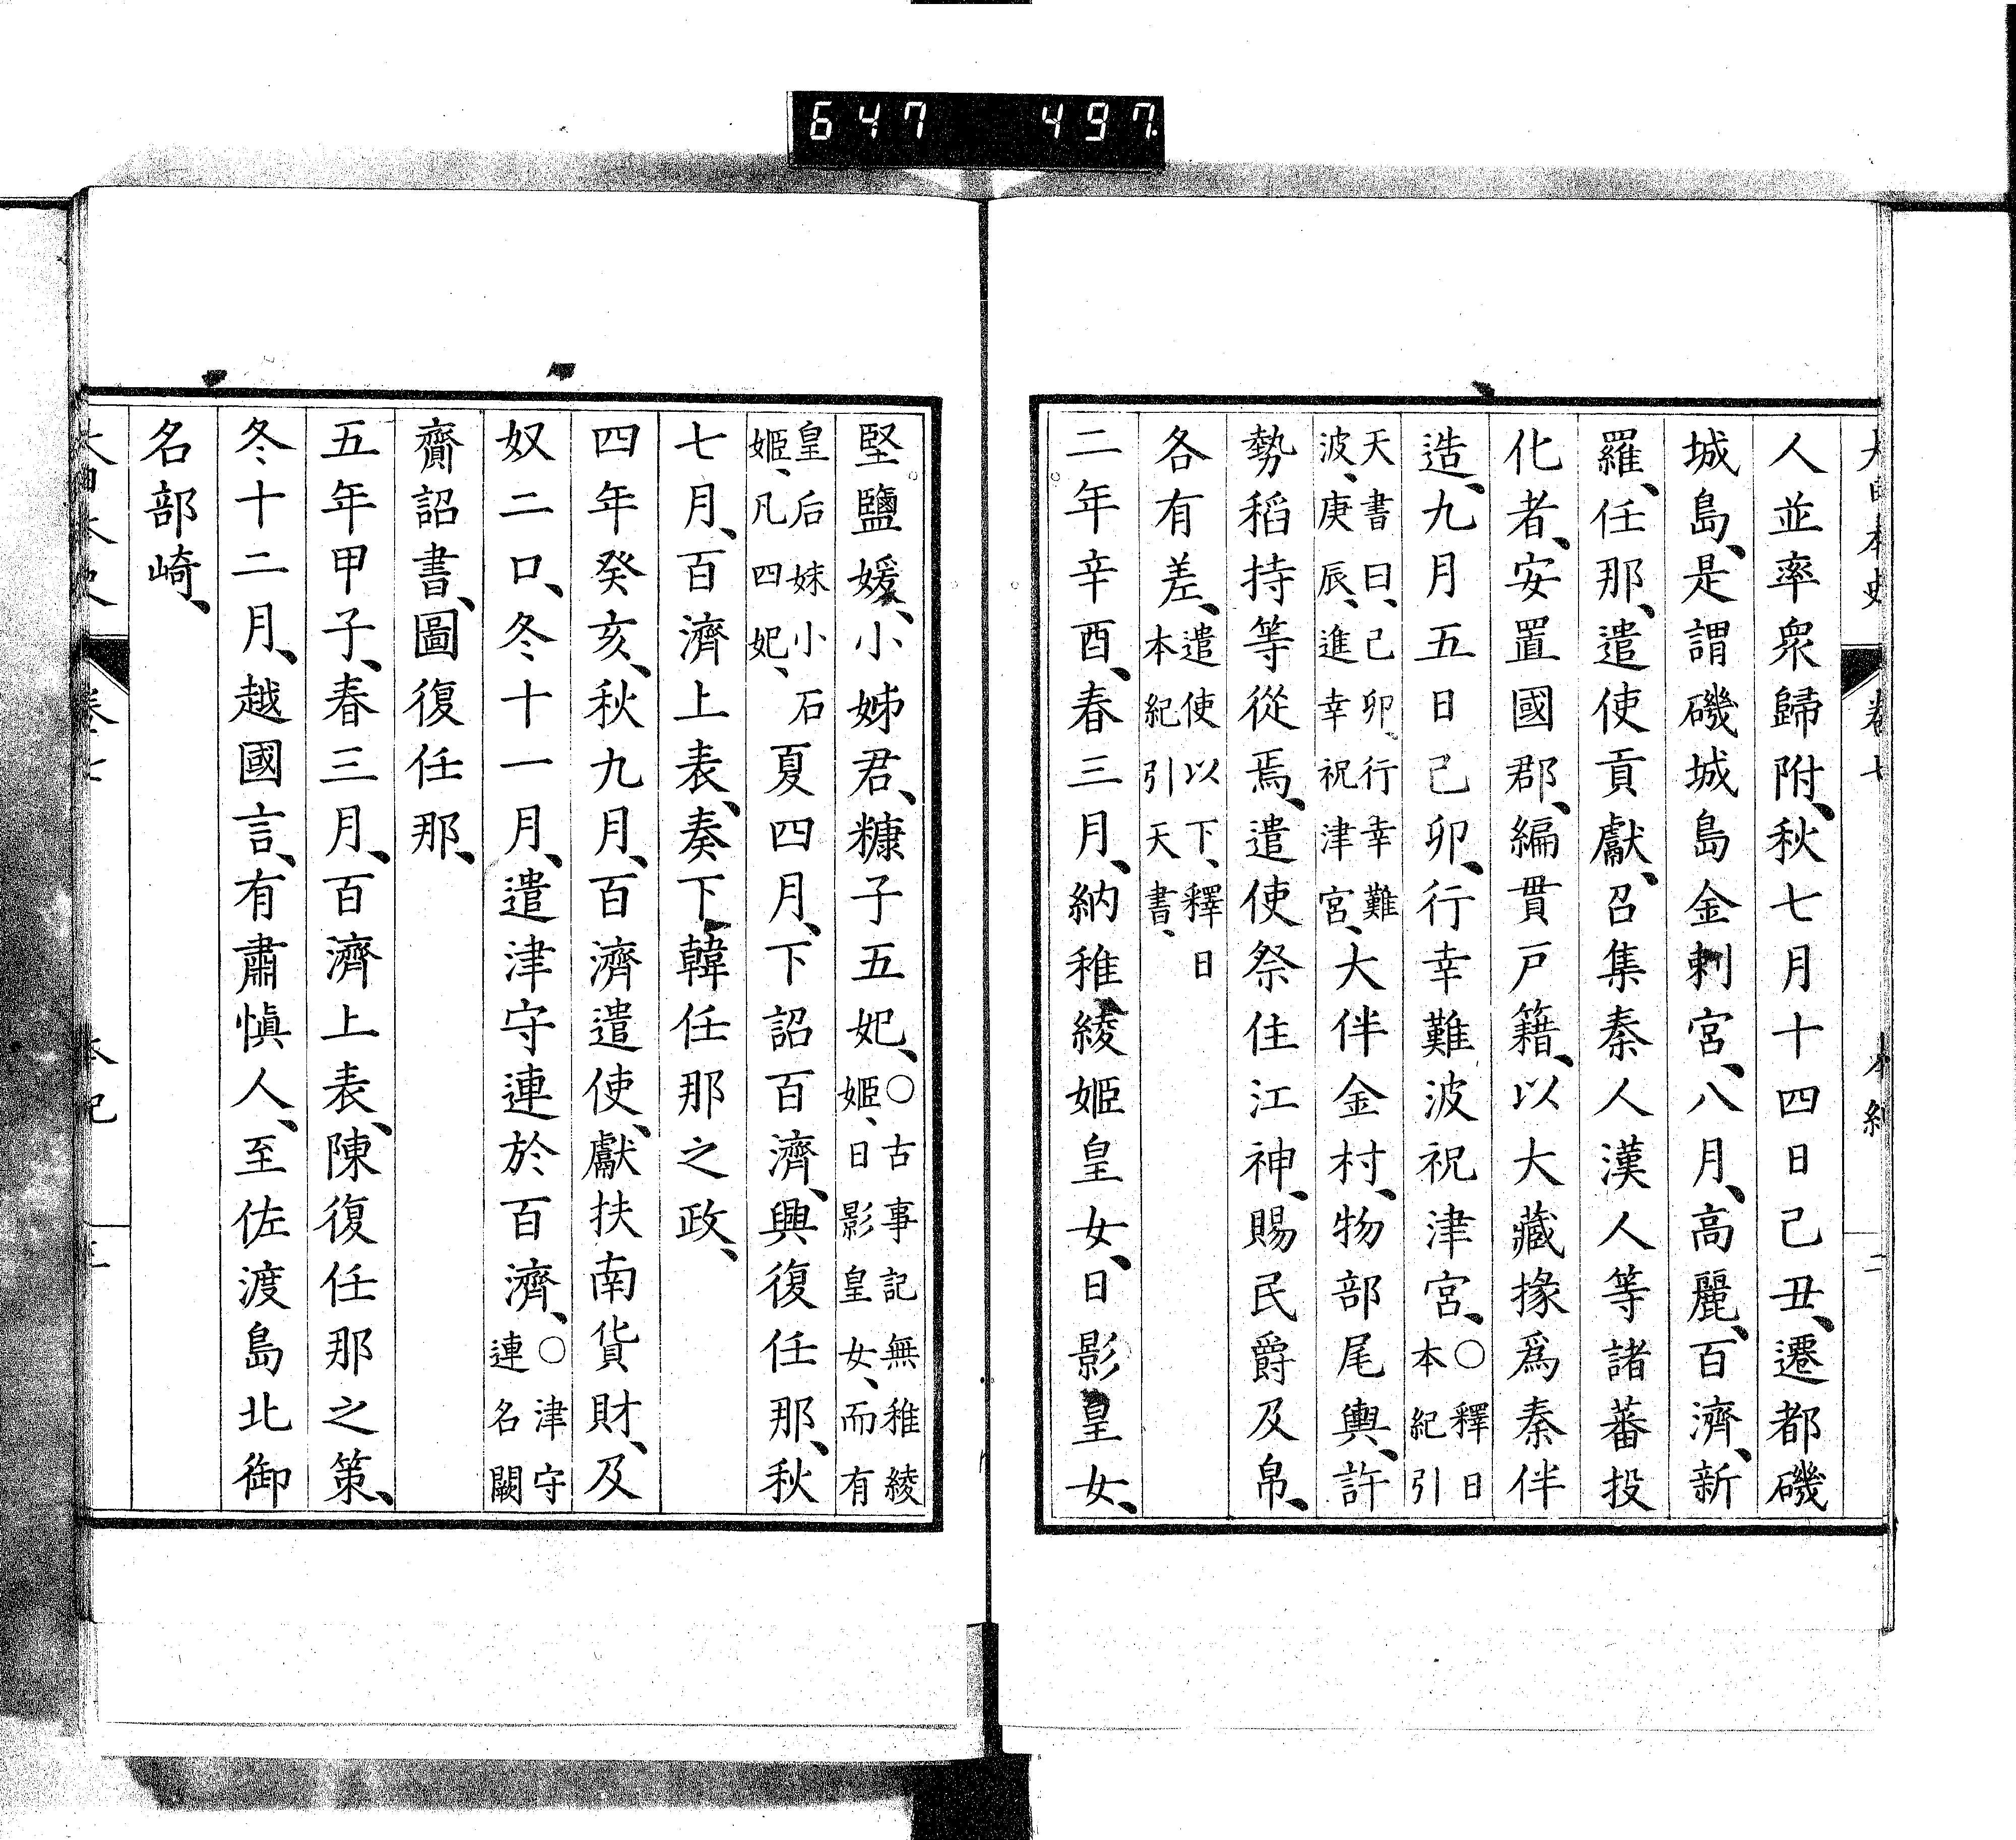 647 497
大日本史 卷七 本紀 二
人並率衆歸附、秋七月十四日己丑、遷都磯
城島、是謂磯城島金刺宮、八月、高麗、百濟、新
羅、任那、遣使貢獻、召集秦人漢人等諸蕃投
化者、安置國郡、編貫戸籍、以大藏掾爲秦伴
造、九月五日己卯、行幸難波祝津宮、○釋日本紀引
天書曰、己卯、行幸難波、庚辰、進幸祝津宮、大伴金村、物部尾輿、許
勢稻持等從焉、遣使祭住江神、賜民爵及帛、
各有差、遣使以下、釋日本紀引天書、
二年辛酉、春三月、納稚綾姬皇女、日影皇女、
堅鹽媛、小姊君、糠子五妃、○古事記無稚綾姬、日影皇女、而有
皇后妹小石姬、凡四妃、夏四月、下詔百濟、興復任那、秋
七月、百濟上表、奏下韓任那之政、
四年癸亥、秋九月、百濟遣使、獻扶南貨財、及
奴二口、冬十一月、遣津守連於百濟、○津守連名闕
齎詔書、圖復任那、
五年甲子、春三月、百濟上表、陳復任那之策、
冬十二月、越國言、有肅愼人、至佐渡島北御
名部崎、
大日本史 卷七 本紀 三